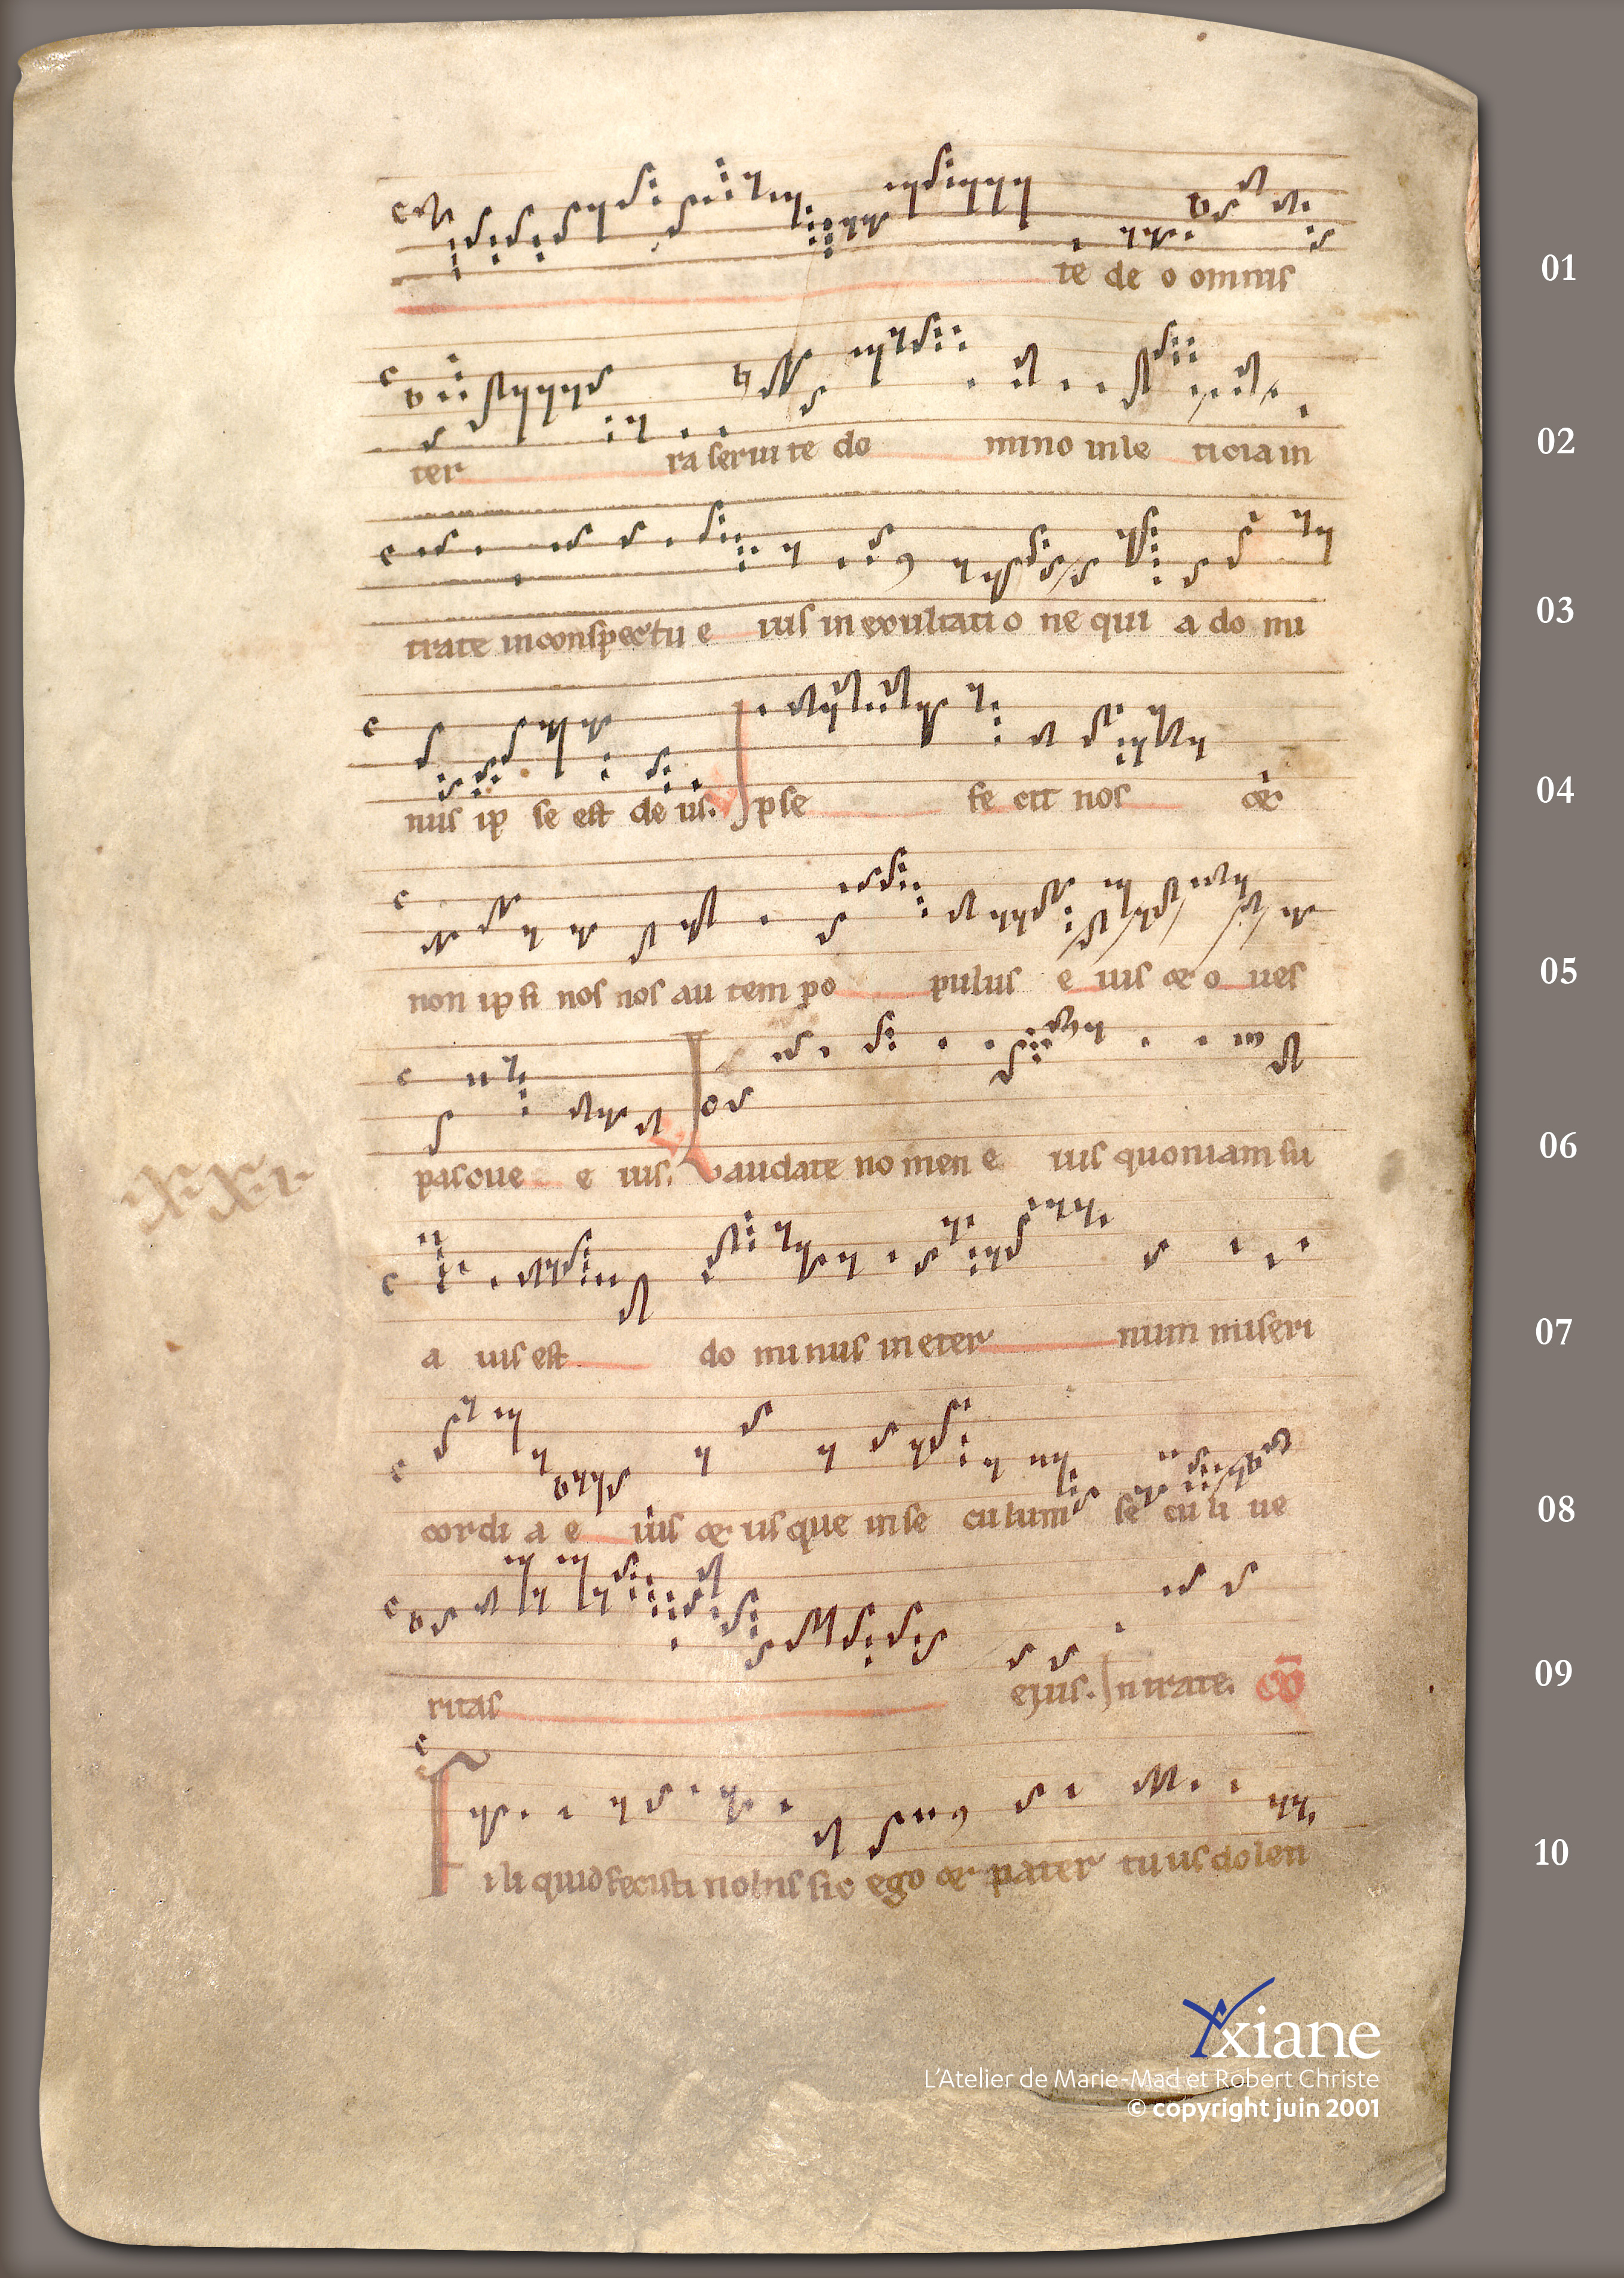 te de o omnis
01
ter ra serui te do mino in le ticia in
02
trate in conspectu e ius in exultati o ne qui a do mi
03
nus ip se est de us. Ipse fe cit nos et
04
non ip si nos nos au tem po pulus e ius et o ues
05
pascue e ius. Laudate no men e ius quoniam su
06
a uis est do mi nus in eter num miseri
07
cordi a e ius et us que in se culum se cu li ue
08
ritas ejus. Intrate. CO
09
Fili quid fecisti nobis sic ego et pater tuus dolen
10
Axiane
L'Atelier de Marie-Mad et Robert Christe
© copyright juin 2001